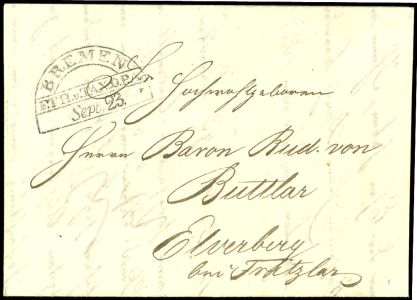 BREMEN
FTH. u. TAX. O.P.A.
Sept. 23.
Hochwohlgeboren
Herrn Baron Rud. von
Buttlar
Elverberg
bei Fritzlar